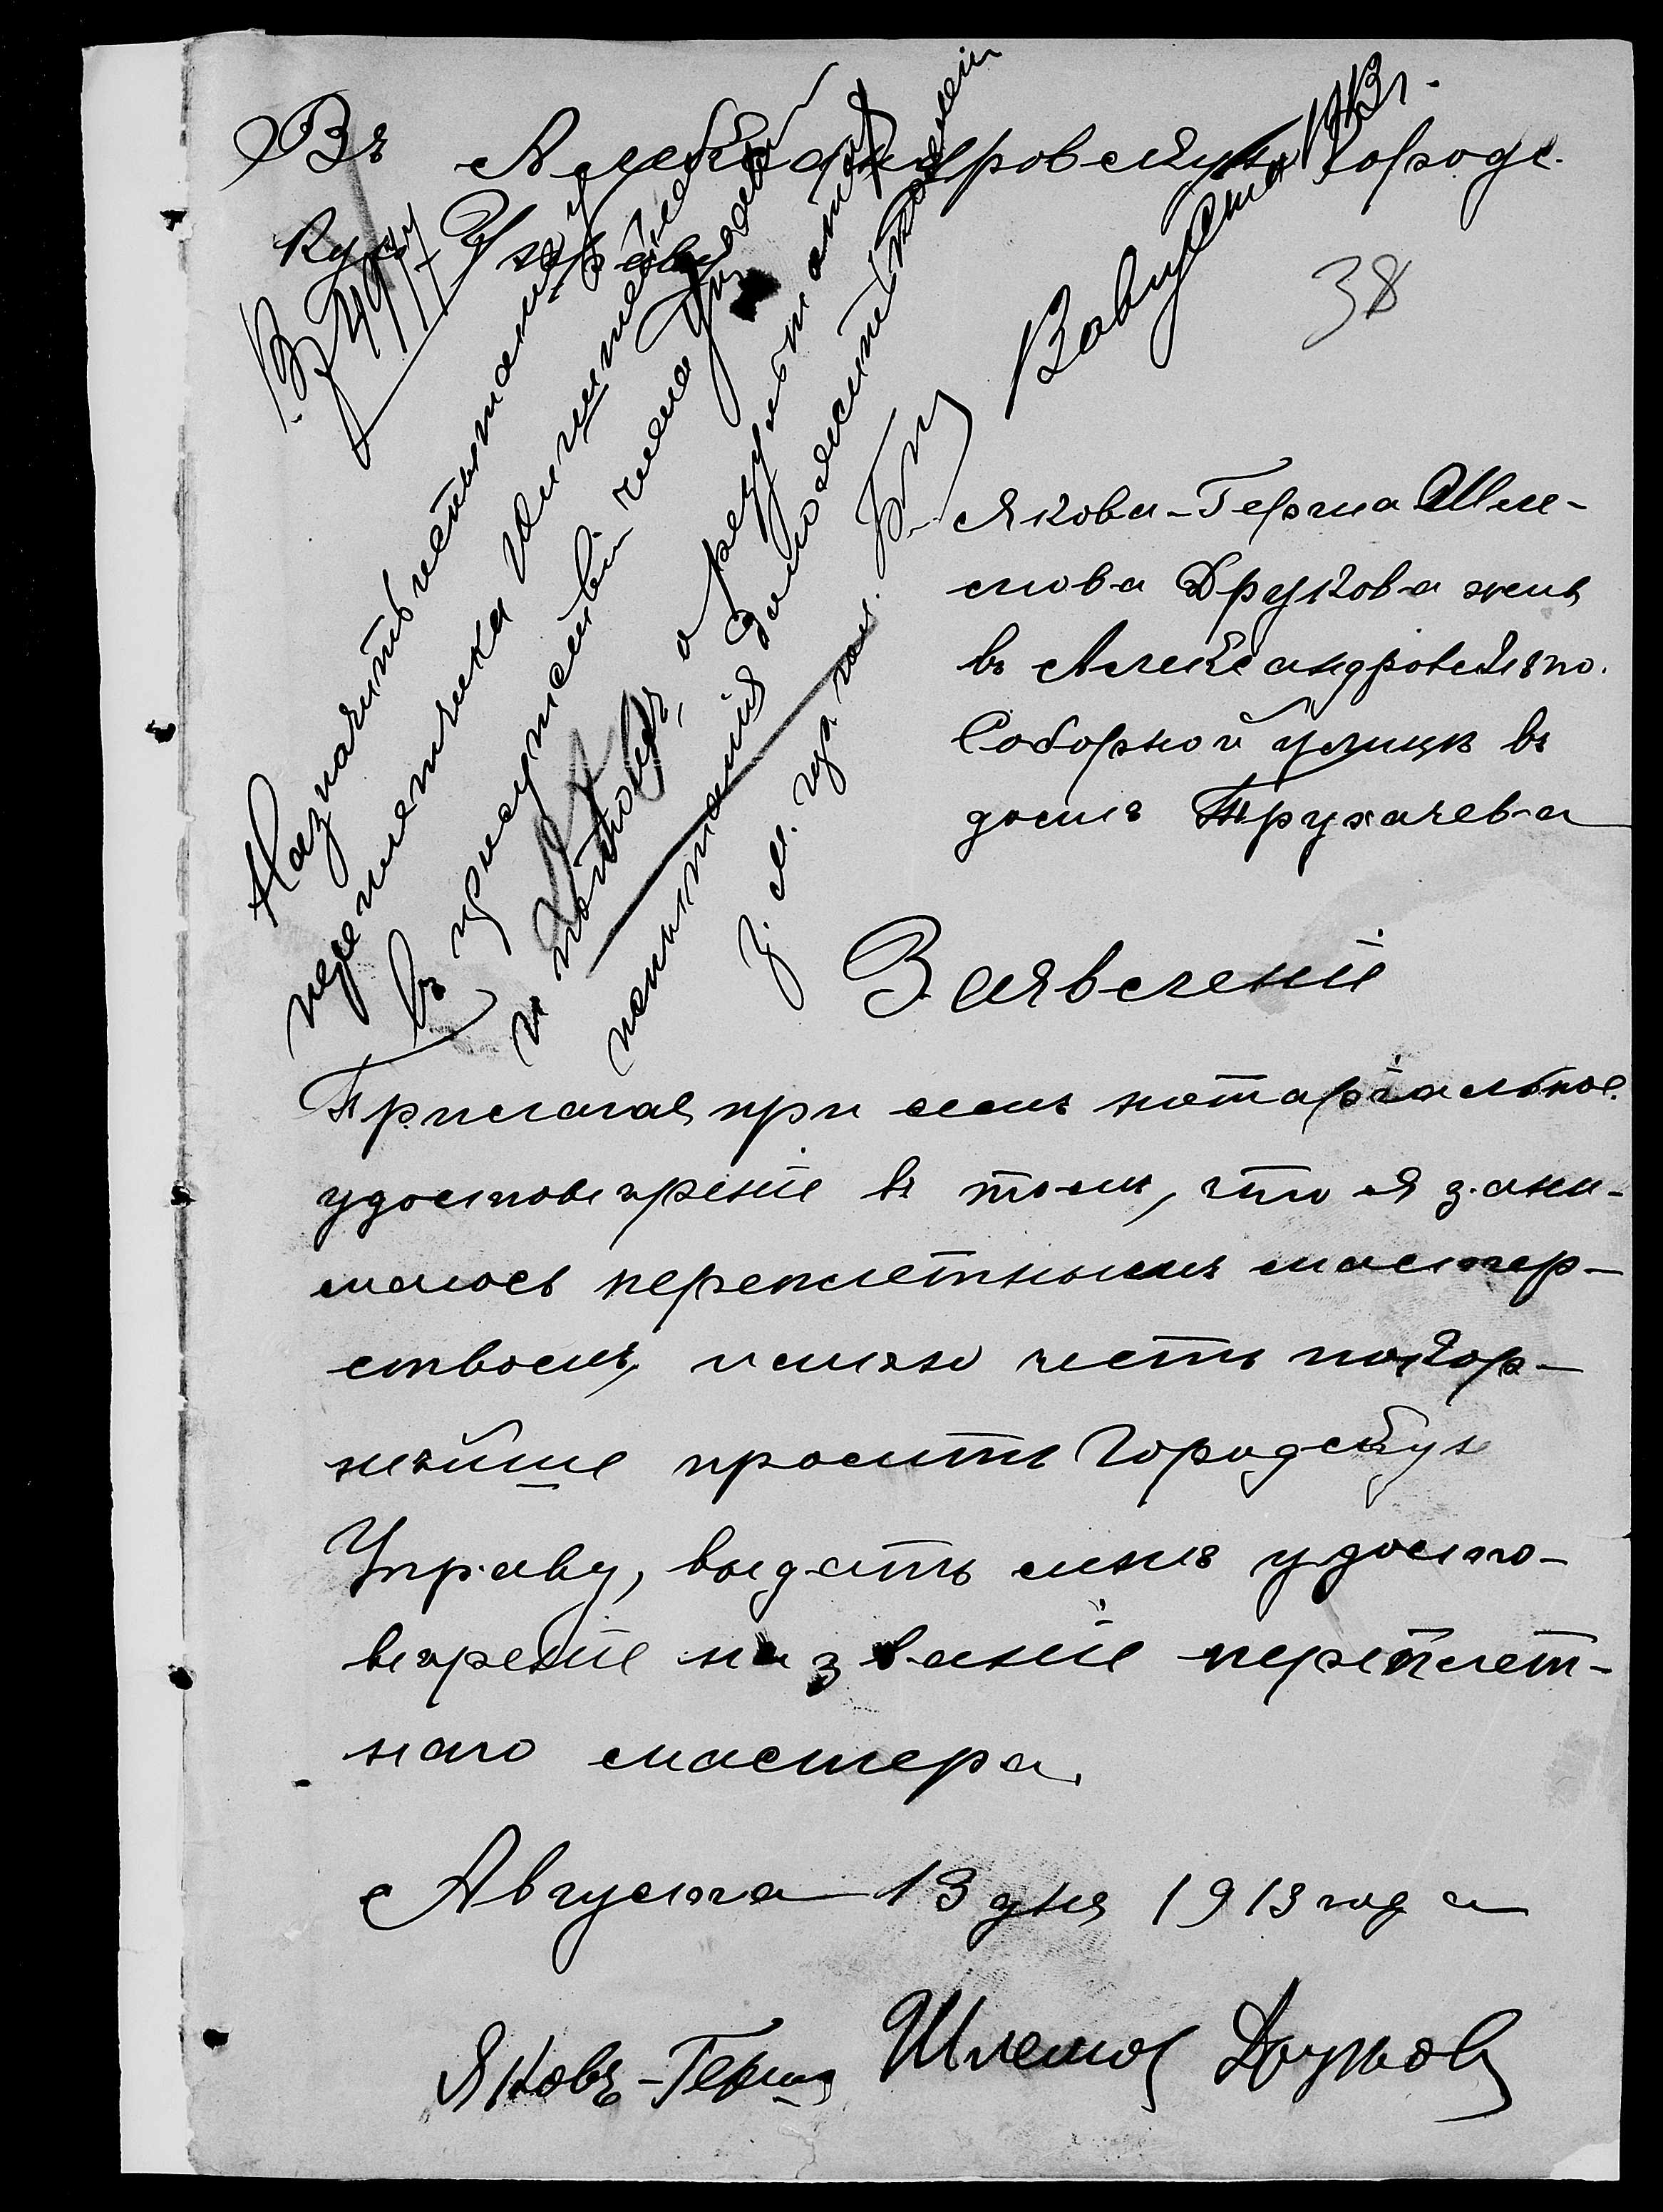 Въ Александровскую Городс.
кую Управу
38
Якова-Герша Шле-
мова Друкова жив.
въ Александровскѣ по.
Соборной улицѣ въ
домѣ Трухачева
Заявленіе
Прилагая при семъ нотаріальное
удостовѣреніе въ томъ, что я зани-
маюсь переплетнымъ мастер-
ствомъ, имѣю честь покор-
нѣйше просить Городскую
Управу, выдать мнѣ удосто-
вѣреніе на званіе переплет-
наго мастера.
Августа 13 дня 1913 года
Яковъ-Герша Шлемов Друков
Назначить испытаніе
переплетчика
въ присутствіи члена Управы
и о результатах
испытанія доложить
13 августа 1913 г.